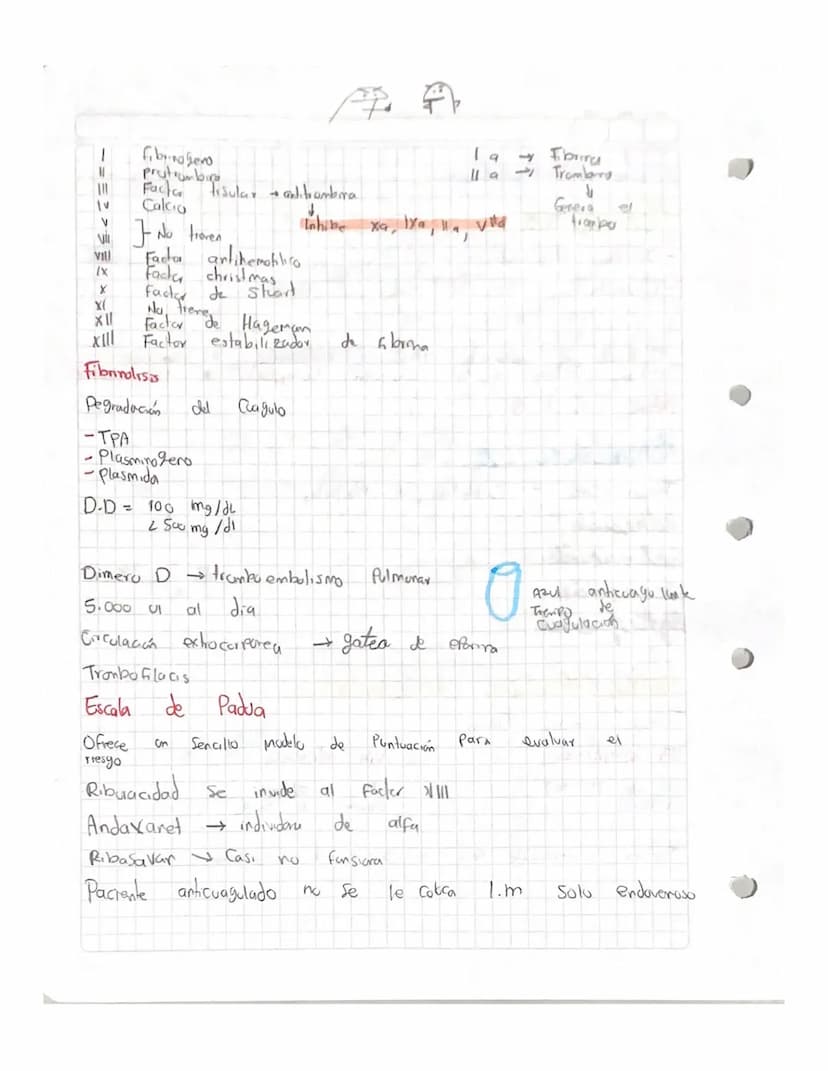 I Fibrinogeno
II protrombina
III Factor tisular → antitrombina
IV Calcio ↓
Inhibe Xa, IXa, IIa, VIId
V
VII } No tienen
VIII Factor antihemofilico
IX Factor christmas
X Factor de Stuart
XI No tiene
XII Factor de Hageman
XIII Factor estabilizador de fibrina
I a → Fibrina
II a → Trombina
↓
Genera el
trombo
Fibrinolisis
Degradación del Coagulo
- TPA
- Plasminogeno
- Plasmida
D.D = 100 mg/dL
< 500 mg/dl
Dimero D → tromboembolismo Pulmonar
5.000 UI al dia
Azul anticoagulante
Tiempo de
Coagulación
Circulación exhocorporea → gatea de
Trombofilacis
Escala de Padua
Ofrece un Sencillo modelo de Puntuación para evaluar el
riesgo
se al Factor XIII
Andaxanet → de alfa
Casi no funsiona
Paciente anticuagulado no se le coloca I.m solo endovenoso